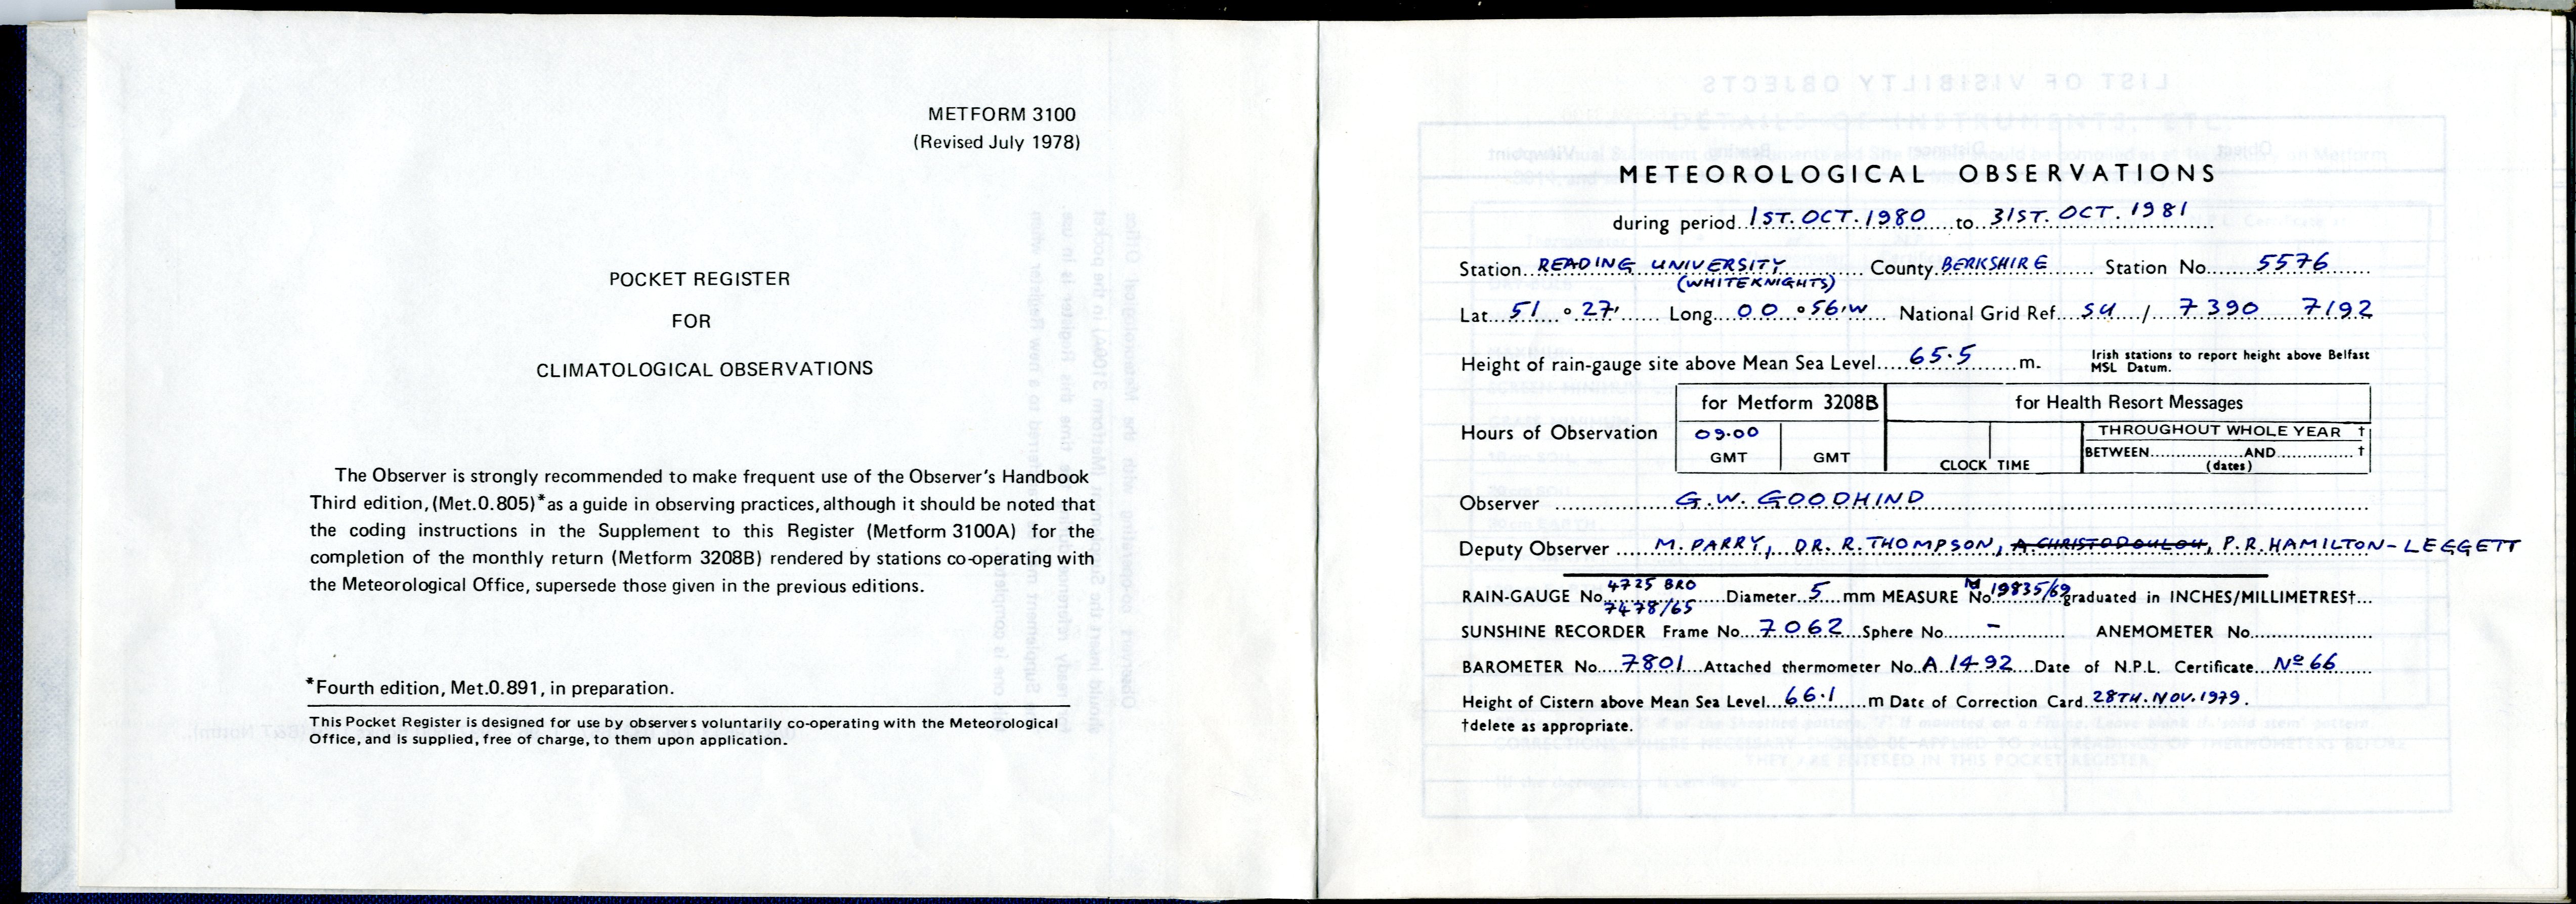 METFORM 3100
(Revised July 1978)
POCKET REGISTER
FOR
CLIMATOLOGICAL OBSERVATIONS
The Observer is strongly recommended to make frequent use of the Observer's Handbook
Third edition, (Met.0.805)* as a guide in observing practices, although it should be noted that
the coding instructions in the Supplement to this Register (Metform 3100A) for the
completion of the monthly return (Metform 3208B) rendered by stations co-operating with
the Meteorological Office, supersede those given in the previous editions.
*Fourth edition, Met.0.891, in preparation.
This Pocket Register is designed for use by observers voluntarily co-operating with the Meteorological
Office, and is supplied, free of charge, to them upon application.
METEOROLOGICAL OBSERVATIONS
during period 1ST. OCT. 1980 to 31ST. OCT. 1981
Station READING UNIVERSITY County BERKSHIRE Station No. 5576
(WHITEKNIGHTS)
Lat. 51 ° 27' Long. 00 ° 56' W National Grid Ref. SU / 7390 7192
Height of rain-gauge site above Mean Sea Level 65.5 m. Irish stations to report height above Belfast
MSL Datum.
for Metform 3208B for Health Resort Messages
Hours of Observation 09.00 GMT GMT CLOCK TIME THROUGHOUT WHOLE YEAR †
BETWEEN AND †
(dates)
Observer G.W. GOODHIND
Deputy Observer M. PARRY, DR. R. THOMPSON, A CHRISTODOULOU, P.R. HAMILTON-LEGGETT
4725 BRO
RAIN-GAUGE No. Diameter 5 mm MEASURE No. 19835/69 graduated in INCHES/MILLIMETRES†
7478/65
SUNSHINE RECORDER Frame No. 7062 Sphere No. - ANEMOMETER No.
BAROMETER No. 7801 Attached thermometer No. A 1492 Date of N.P.L. Certificate Nº 66
Height of Cistern above Mean Sea Level 66.1 m Date of Correction Card 28TH. NOV. 1979.
†delete as appropriate.